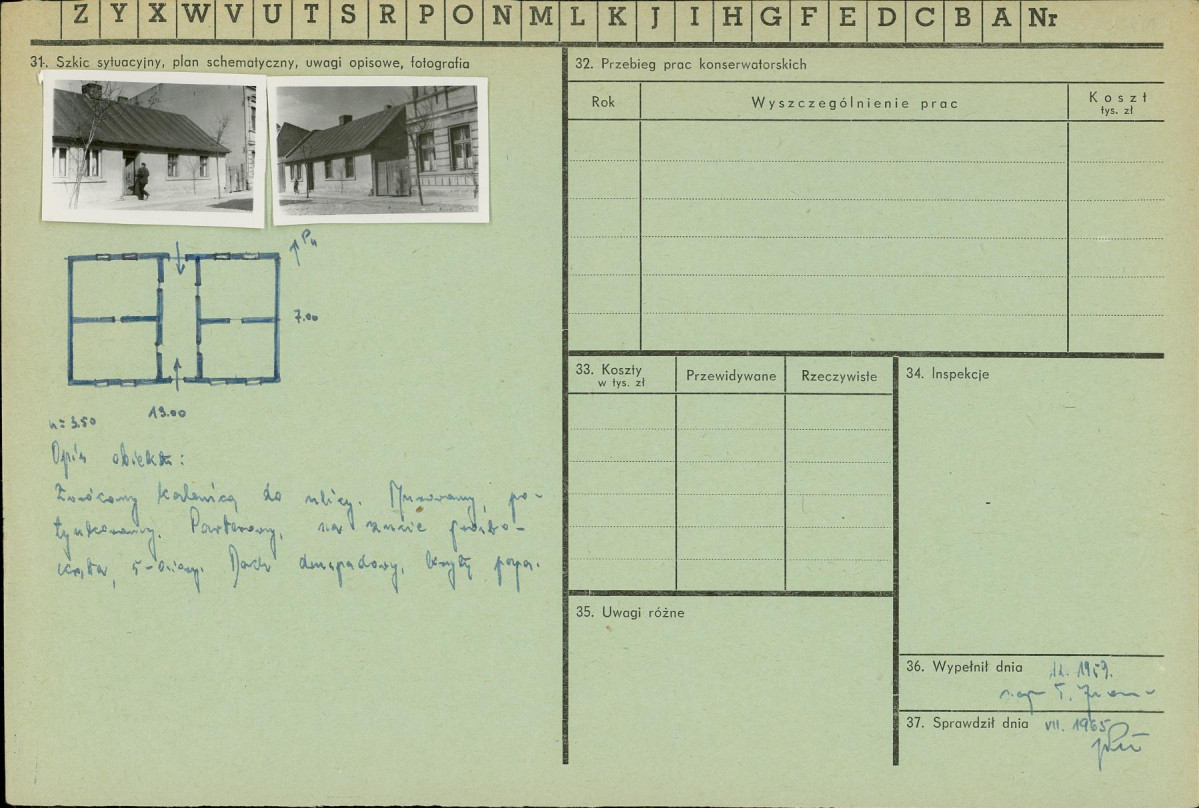 Z Y X W V U T S R P O N M L K J I H G F E D C B A Nr
31. Szkic sytuacyjny, plan schematyczny, uwagi opisowe, fotografia
Pn
7.00
13.00
h = 3.50
Opis obiektu:
Zwrócony kalenicą do ulicy. Murowany, po-
tynkowany. Parterowy, na rzucie prosto-
kąta, 5-osiowy. Dach dwuspadowy, kryty papą.
32. Przebieg prac konserwatorskich
Rok
Wyszczególnienie prac
Koszt
tys. zł
33. Koszty
w tys. zł
Przewidywane
Rzeczywiste
34. Inspekcje
35. Uwagi różne
36. Wypełnił dnia 11. 1959.
mgr T.
37. Sprawdził dnia VII. 1965